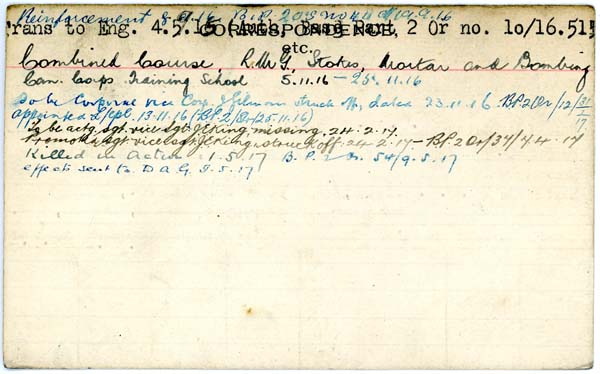 Reinforcement 8.9.16 B.P. 2 O S no 44 d/19.9.16
Trans to Eng. 4.5.15 Auth. Base Part 2 Or no. 10/16.515
CORRESPONDENCE,
etc.
Combined Course, L.M.G. Stokes, Mortar and Bombing
Can. Corps. Training School 5.11.16 – 25.11.16
to be Corporal vice Corp. J Gilmour struck off, dated 23.11.16. B.P.2 Or/12/31/1/17
appointed L/Cpl. 13.11.16 (B.P. 2/Or/25.11.16)
To be actg. sgt. vice sgt. King, missing, 24.2.17.
Promoted sgt. vice sgt. King, struck off. 24.2.17 – B.P. 2 Or/34/4.4.17
Killed in Action 1.5.17 B.P. 2 Or. 54/9.5.17
effects sent to D A G 9.5.17